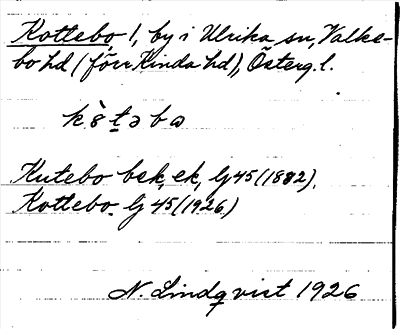 Kottebo, 1, by i Ulrika sn, Valke-
bo hd (förr Kinda hd), Österg. l.
Kutebo bek, ek, Gj 45 (1882).
Kottebo. Gj 45 (1926)
N. Lindqvist 1926